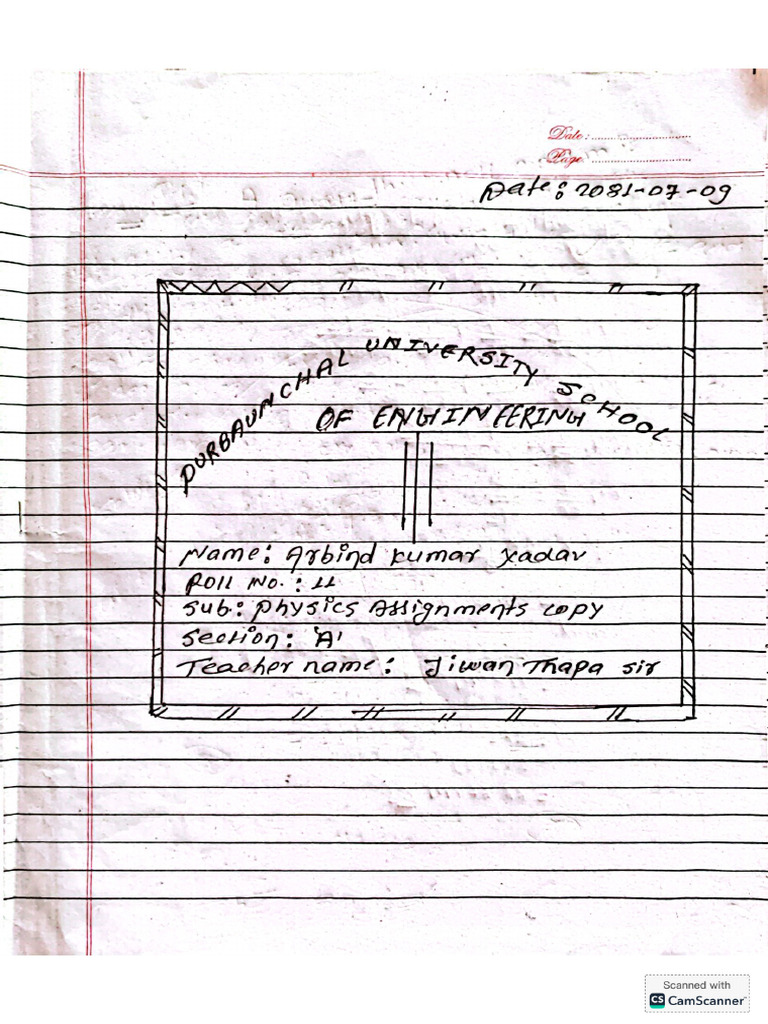 Date:
Page:
Date: 2081-07-09
PURBAUNCHAL UNIVERSITY SCHOOL
OF ENGINEERING
Name: Arbind Kumar Yadav
Roll No.: 11
Sub: Physics Assignments copy
Section: 'A'
Teacher name: Jiwan Thapa sir
Scanned with
CS CamScanner